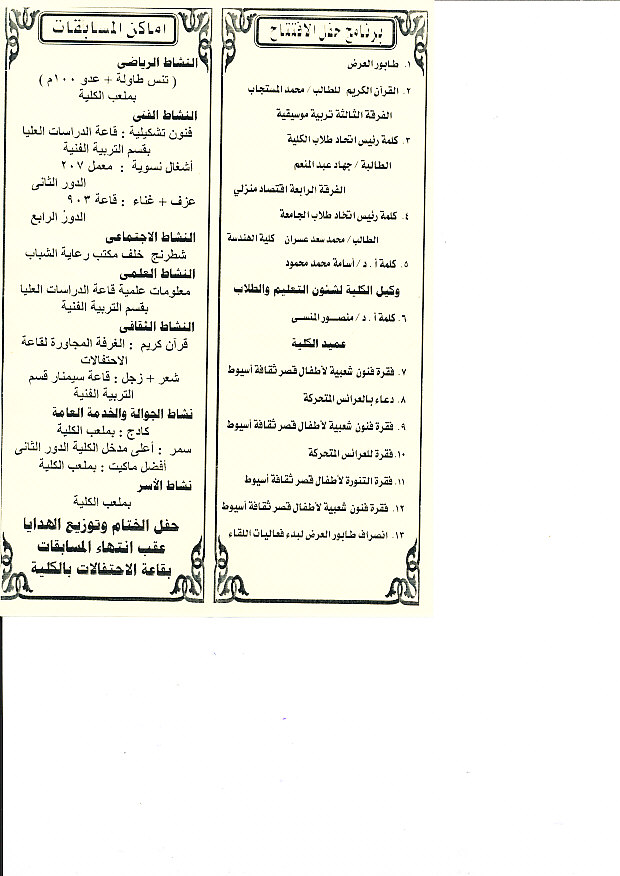 برنامج حفل الافتتاح
١. طابور العرض
٢. القرآن الكريم للطالب / محمد المستجاب
الفرقة الثالثة تربية موسيقية
٣. كلمة رئيس اتحاد طلاب الكلية
الطالبة / جهاد عبد المنعم
الفرقة الرابعة اقتصاد منزلي
٤. كلمة رئيس اتحاد طلاب الجامعة
الطالب / محمد سعد عسران كلية الهندسة
٥. كلمة أ . د / أسامة محمد محمود
وكيل الكلية لشئون التعليم والطلاب
٦. كلمة أ . د / منصور المنسى
عميد الكلية
٧. فقرة فنون شعبية لأطفال قصر ثقافة أسيوط
٨. دعاء بالعرائس المتحركة
٩. فقرة فنون شعبية لأطفال قصر ثقافة أسيوط
١٠. فقرة للعرائس المتحركة
١١. فقرة التنورة لأطفال قصر ثقافة أسيوط
١٢. فقرة فنون شعبية لأطفال قصر ثقافة أسيوط
١٣. انصراف طابور العرض لبدء فعاليات اللقاء
اماكن المسابقات
النشاط الرياضى
( تنس طاولة + عدو ١٠٠م )
بملعب الكلية
النشاط الفنى
فنون تشكيلية : قاعة الدراسات العليا
بقسم التربية الفنية
أشغال نسوية : معمل ٢٠٧
الدور الثانى
عزف + غناء : قاعة ٩٠٣
الدور الرابع
النشاط الاجتماعى
شطرنج خلف مكتب رعاية الشباب
النشاط العلمى
معلومات علمية قاعة الدراسات العليا
بقسم التربية الفنية
النشاط الثقافى
قرآن كريم : الغرفة المجاورة لقاعة
الاحتفالات
شعر + زجل : قاعة سيمنار قسم
التربية الفنية
نشاط الجوالة والخدمة العامة
كادج : بملعب الكلية
سمر : أعلى مدخل الكلية الدور الثانى
أفضل ماكيت : بملعب الكلية
نشاط الأسر
بملعب الكلية
حفل الختام وتوزيع الهدايا
عقب انتهاء المسابقات
بقاعة الاحتفالات بالكلية